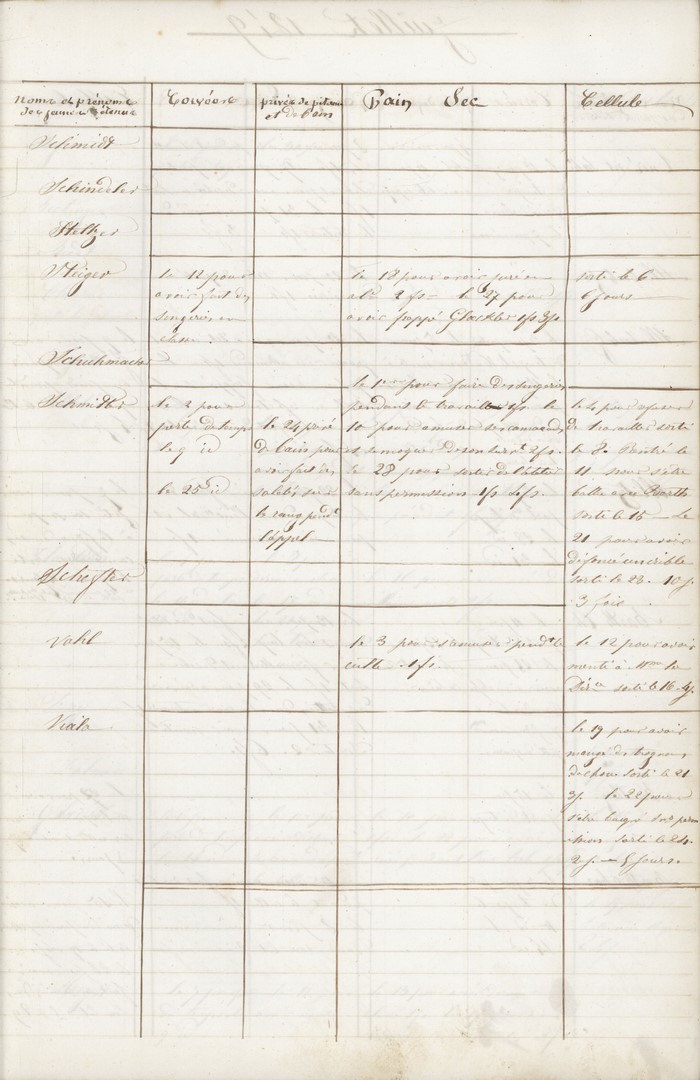 Noms et prénoms
des jeunes détenus
Corvées
privés de pitance
et de bain
Pain Sec
Cellule
Schmidt
Schindeler
Steltzer
Steiger
le 12 pour
avoir fait des
singeries en
classe
le 18 pour avoir
le 27 pour
avoir frappé
sorti le 6
6 jours
Schuhmacher
Schmider
le 2 pour
perte de
le 9 id
le 25 id
le 24 privé
de bain pour
avoir fait des
saletés sur
le rang pendt
l'appel
le 1er pour faire des singeries
pendant le travail 1 js. le
10 pour amuser ses camarades
et se moquer de son
le 28 pour sortir de l'atelier
sans permission 1 js 4 js.
le 4 pour refuser
de travailler sorti
le 8. Rentré le
11 pour s'être
battu avec Barth
sorti le 15 — Le
21 pour avoir
défoncé un crible
sorti le 23. 10 j.
3 fois
Scheffer
Vohl
le 3 pour s'amuser pendt le
culte 1 js.
le 12 pour avoir
menti à Mme la
Dirce sorti le 16. 4 j.
Viala
le 19 pour avoir
mangé des trognons
de choux sorti le 21
3 j. le 22 pour
s'être baigné sans permis
sion sorti le 24.
2 j. — 5 jours.